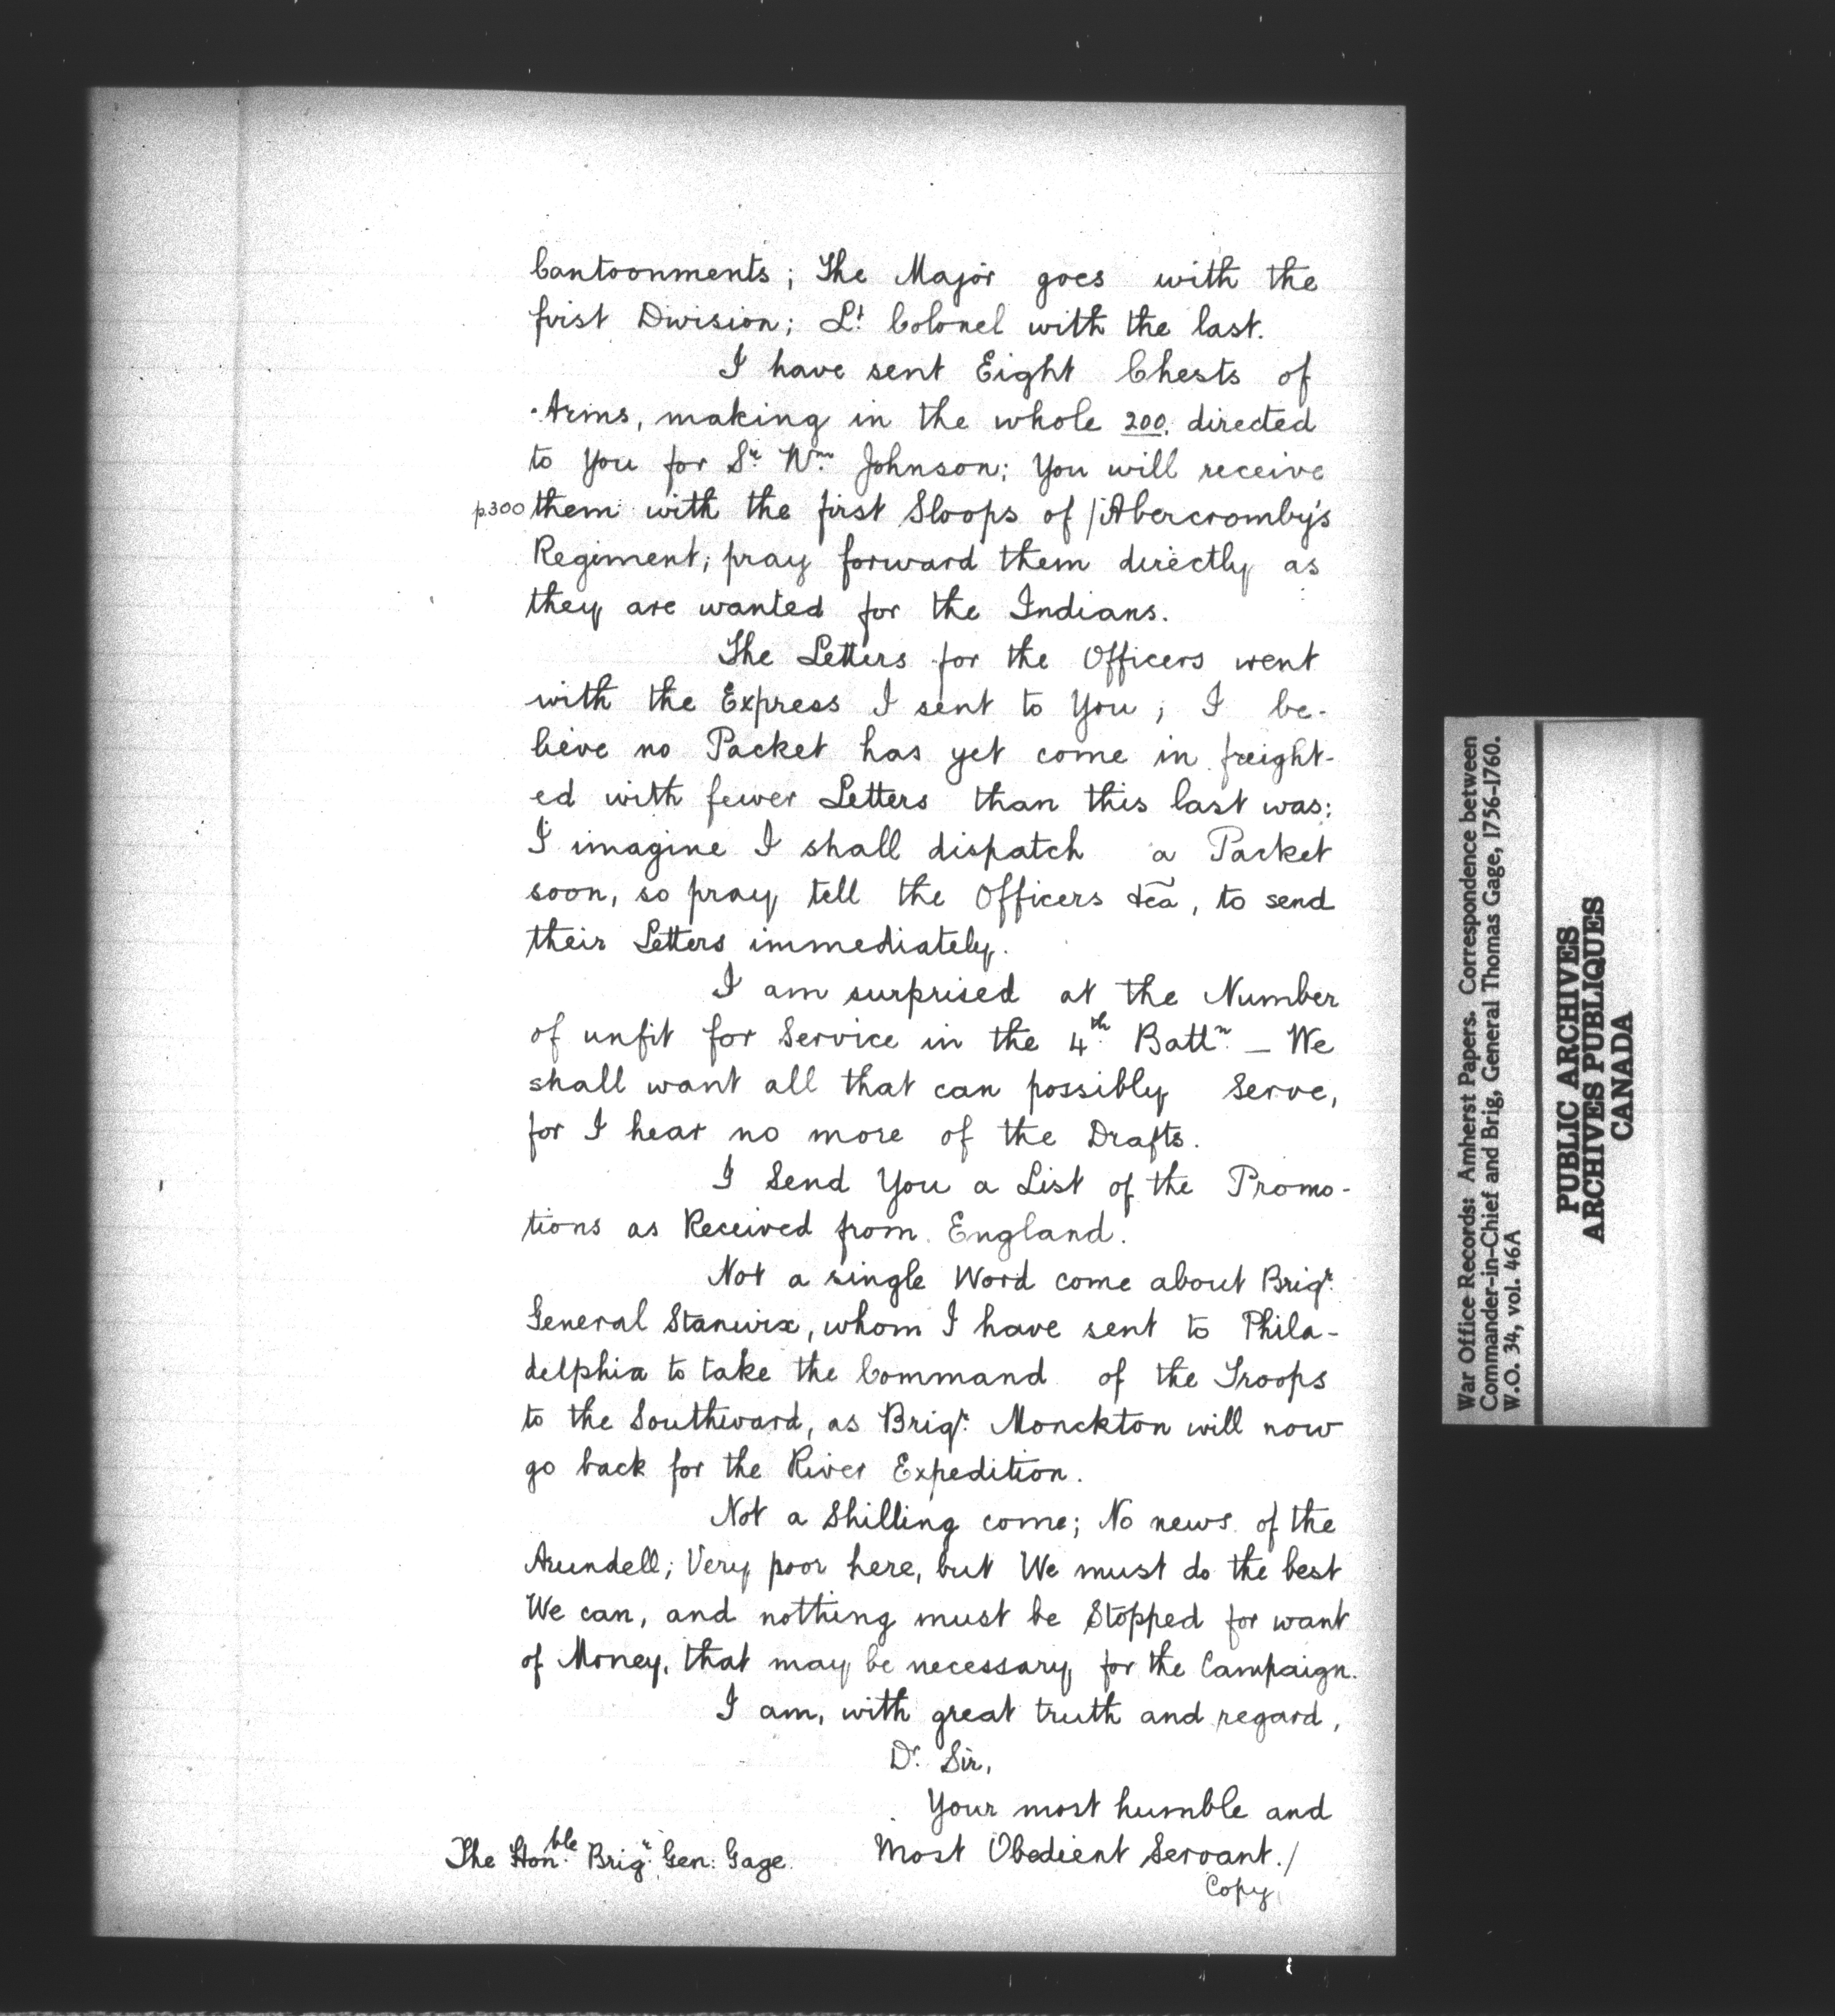 Cantoonments; The Major goes with the
first Division; Lt. Colonel with the last.
I have sent Eight Chests of
Arms, making in the whole 200. directed
to You for Sr. Wm. Johnson; You will receive
p.300 them with the first Sloops of / Abercromby's
Regiment; pray forward them directly as
they are wanted for the Indians.
The Letters for the Officers went
with the Express I sent to You; I be-
lieve no Packet has yet come in freight-
ed with fewer Letters than this last was;
I imagine I shall dispatch a Packet
soon, so pray tell the Officers &ca, to send
their Letters immediately.
I am surprised at the Number
of unfit for Service in the 4th. Battn. — We
shall want all that can possibly Serve,
for I hear no more of the Drafts.
I Send You a List of the Promo-
tions as Received from England.
Not a single Word come about Brigr.
General Stanwix, whom I have sent to Phila-
delphia to take the Command of the Troops
to the Southward, as Brigr. Monckton will now
go back for the River Expedition.
Not a Shilling come; No news of the
Arundell; Very poor here, but We must do the best
We can, and nothing must be Stopped for want
of Money, that may be necessary for the Campaign.
I am, with great truth and regard,
Dr. Sir,
Your most humble and
Most Obedient Servant./
The Honble. Brigr. Gen: Gage.
Copy
War Office Records: Amherst Papers. Correspondence between
Commander-in-Chief and Brig, General Thomas Gage, 1756-1760.
W.O. 34, vol. 46A
PUBLIC ARCHIVES
ARCHIVES PUBLIQUES
CANADA